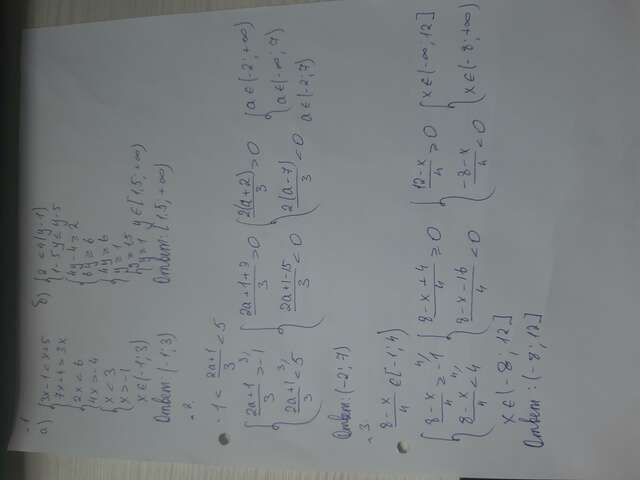 ~1
а) { 3x-1<x+5
{ 7x+4≥3x
{ 2x<6
{ 4x≥-4
{ x<3
{ x>-1
x∈(-1;3)
Ответ: (-1;3)
б) { 2≤4(y-1)
{ 1-5y≤y-5
{ 4y-4≥2
{ 6y≥6
{ 4y≥6
{ y≥1
{ y≥1,5
{ y≥1 y∈[1,5;+∞)
Ответ: [1,5;+∞)
~2.
-1<(2a+1)/3<5
{ (2a+1)/3>-1 { (2a+1+3)/3>0 { 2(a+2)/3>0 { a∈(-2;+∞)
{ (2a+1)/3<5 { (2a+1-15)/3<0 { 2(a-7)/3<0 { a∈(-∞;7)
a∈(-2;7)
Ответ: (-2;7)
~3.
(8-x)/4∈[-1;4)
{ (8-x)/4≥-1 { (8-x+4)/4≥0 { (12-x)/4≥0 { x∈(-∞;12]
{ (8-x)/4<4 { (8-x-16)/4<0 { (-8-x)/4<0 { x∈(-8;+∞)
x∈(-8;12]
Ответ: (-8;12]